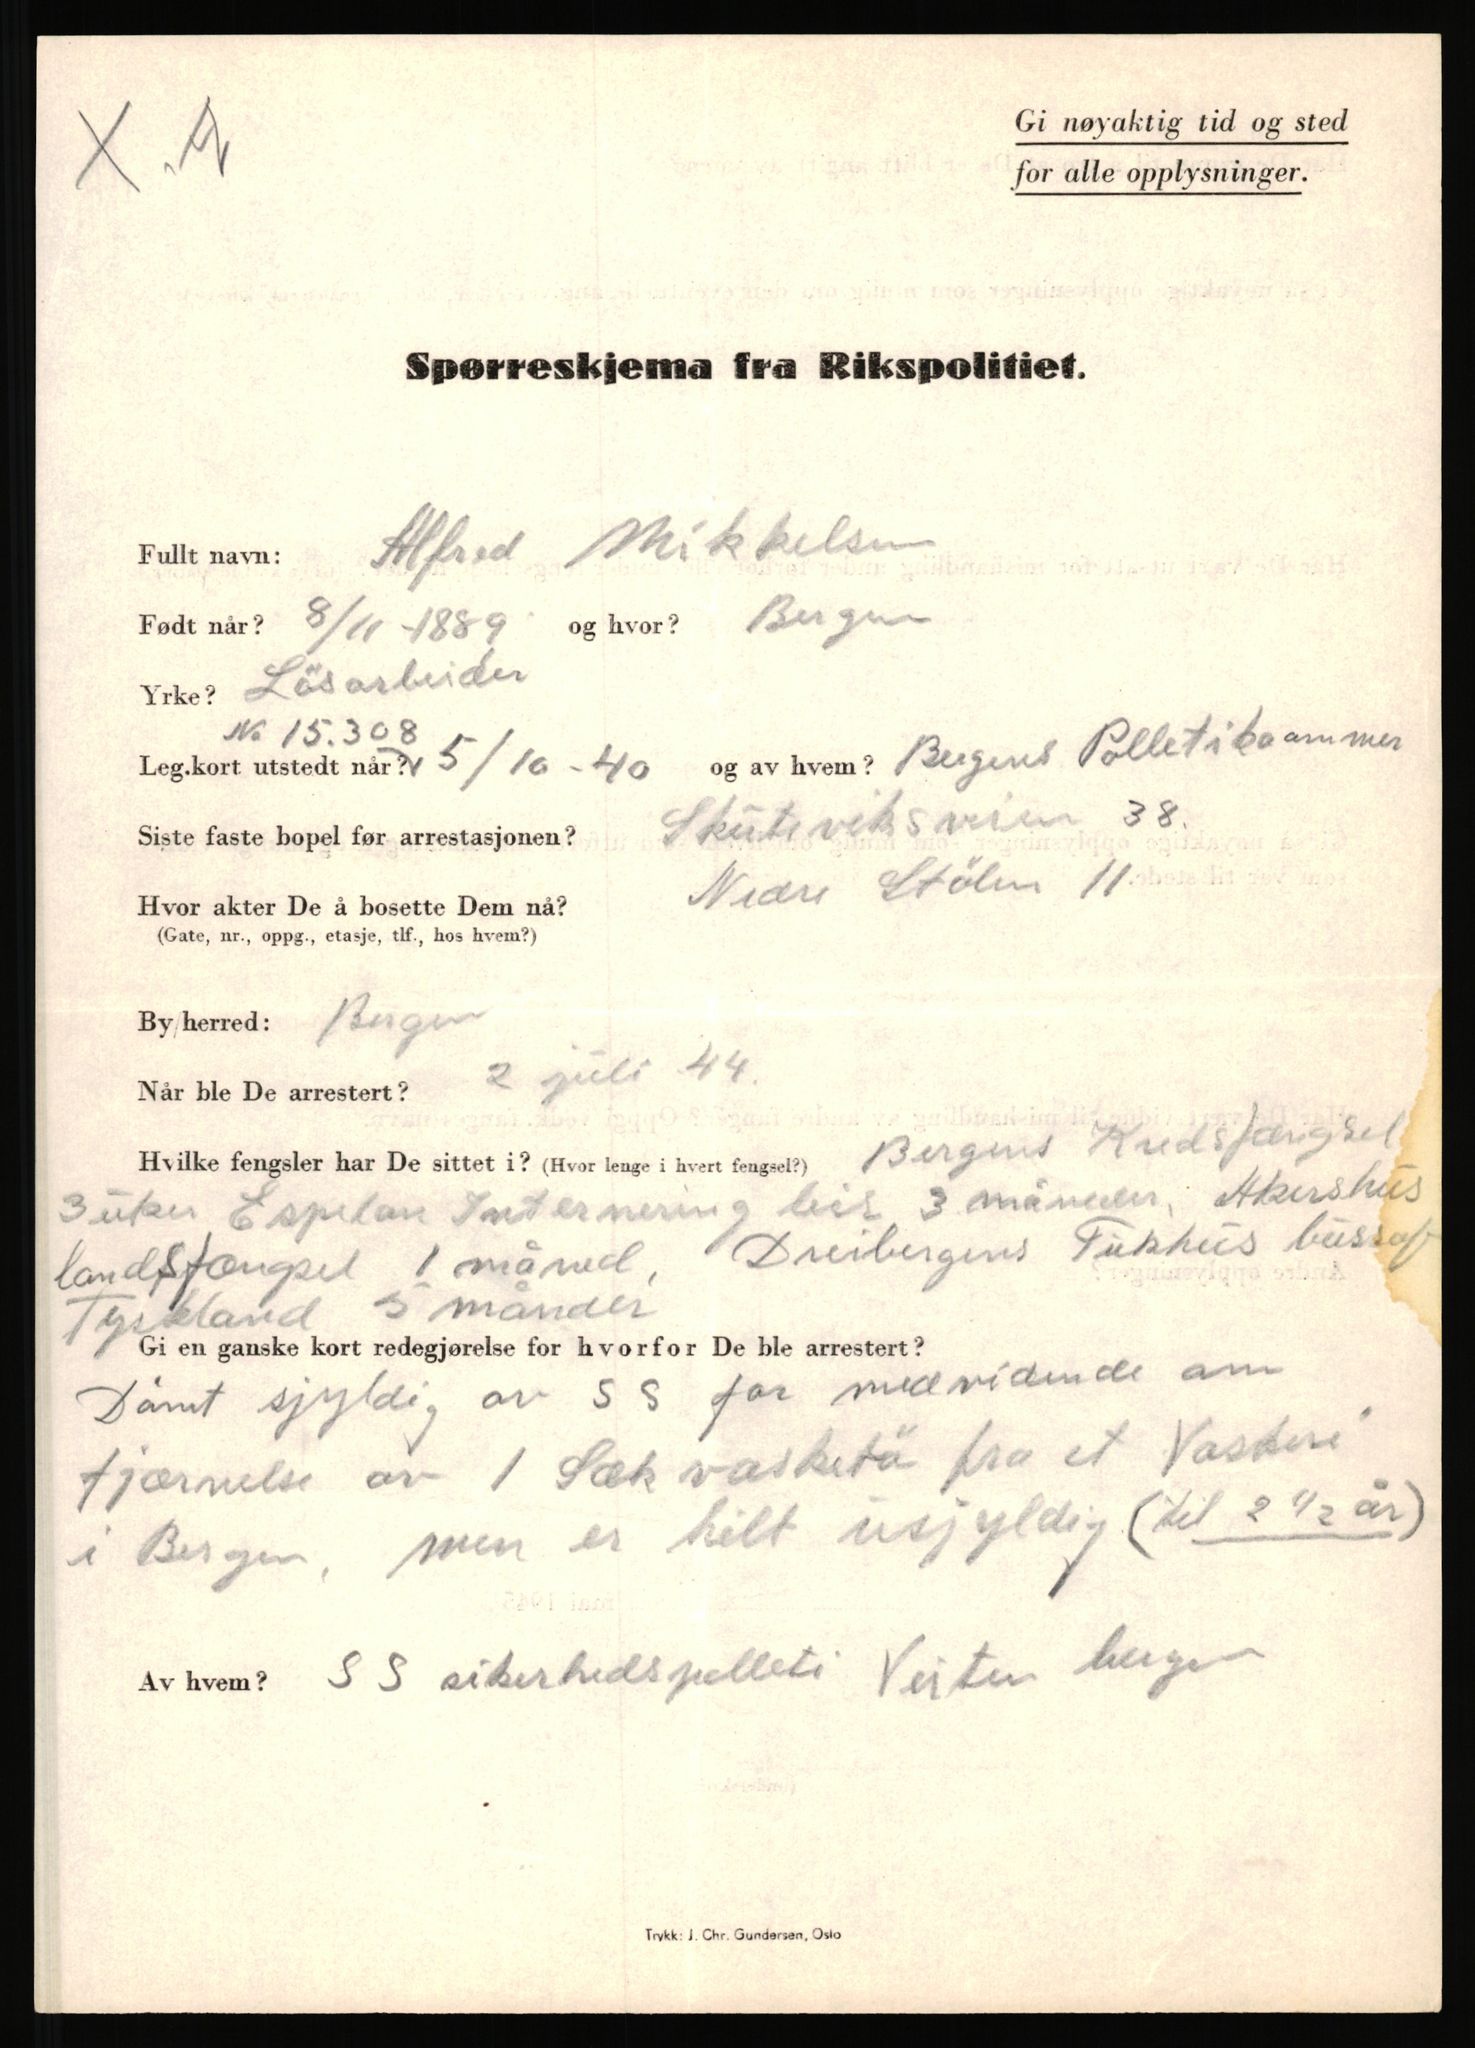 X. A
Gi nøyaktig tid og sted
for alle opplysninger.
Spørreskjema fra Rikspolitiet.
Fullt navn: Alfred Mikkelsen
Født når? 8/11-1889 og hvor? Bergen
Yrke? Lösarbeider
No 15.308
Leg.kort utstedt når? 5/10-40 og av hvem? Bergens Polletikaammer
Siste faste bopel før arrestasjonen? Skuteviksveien 38.
Hvor akter De å bosette Dem nå? Nedre Stölen 11
(Gate, nr., oppg., etasje, tlf., hos hvem?)
By/herred: Bergen
Når ble De arrestert? 2 juli 44.
Hvilke fengsler har De sittet i? (Hvor lenge i hvert fengsel?) Bergens Kredsfængsel
3 uker Espelan Internering leir 3 måneder, Akershus
landsfængsel 1 måned, Dreibergens Tukhus
Tyskland 5 månder
Gi en ganske kort redegjørelse for hvorfor De ble arrestert?
Dömt sjyldig av SS for medvidende om
fjærnelse av 1 Sæk vasketö fra et Vaskeri
i Bergen, men er helt usjyldig (til 2 1/2 år)
Av hvem? SS sikerhedspolleti Veiten bergen
Trykk: J. Chr. Gundersen, Oslo